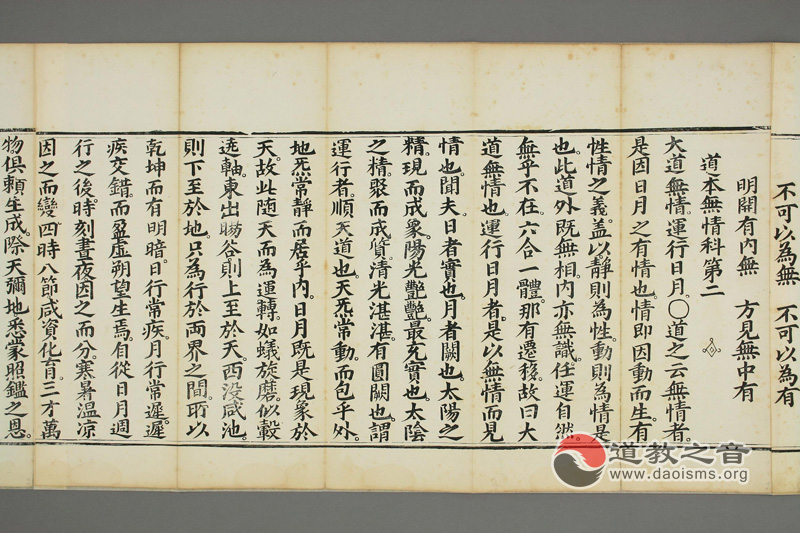 不可以為無　不可以為有
明開有內無　方見無中有
道本無情科第二
大道無情。運行日月。〇道之云無情者。
是因日月之有情也。情即因動而生。有
性情之義。盖以靜則為性。動則為情。是
也。此道外既無相。內亦無識。任運自然。
無乎不在。六合一體。那有遷移。故曰大
道無情也。運行日月者。是以無情而見
情也。聞夫日者實也。月者闕也。太陽之
精。現而成象。陽光艷艷。最充實也。太陰
之精。聚而成質。清光湛湛。有圓闕也。謂
運行者。順天道也。天炁常動。而包乎外。
地炁常靜。而居乎內。日月既是現象於
天。故此随天而為運轉。如蟻旋磨。似轂
遶軸。東出暘谷。則上至於天。西没咸池。
則下至於地。只為行於兩界之間。所以
乾坤而有明暗。日行常疾。月行常遲。遲
疾交錯。而盈虛朔望生焉。自從日月週
行之後。時刻晝夜。因之而分。寒暑溫凉。
因之而變。四時八節。咸資化育。三才萬
物。俱賴生成。際天彌地。悉蒙照鑑之恩。
道教之音
www.daoisms.org